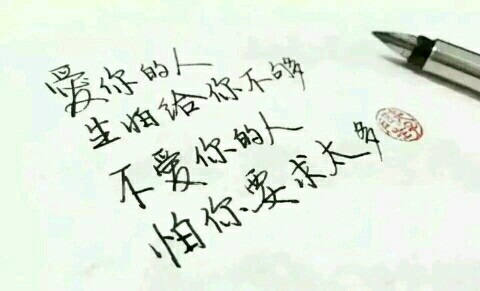 爱你的人
生怕给你不够
不爱你的人
怕你要求太多